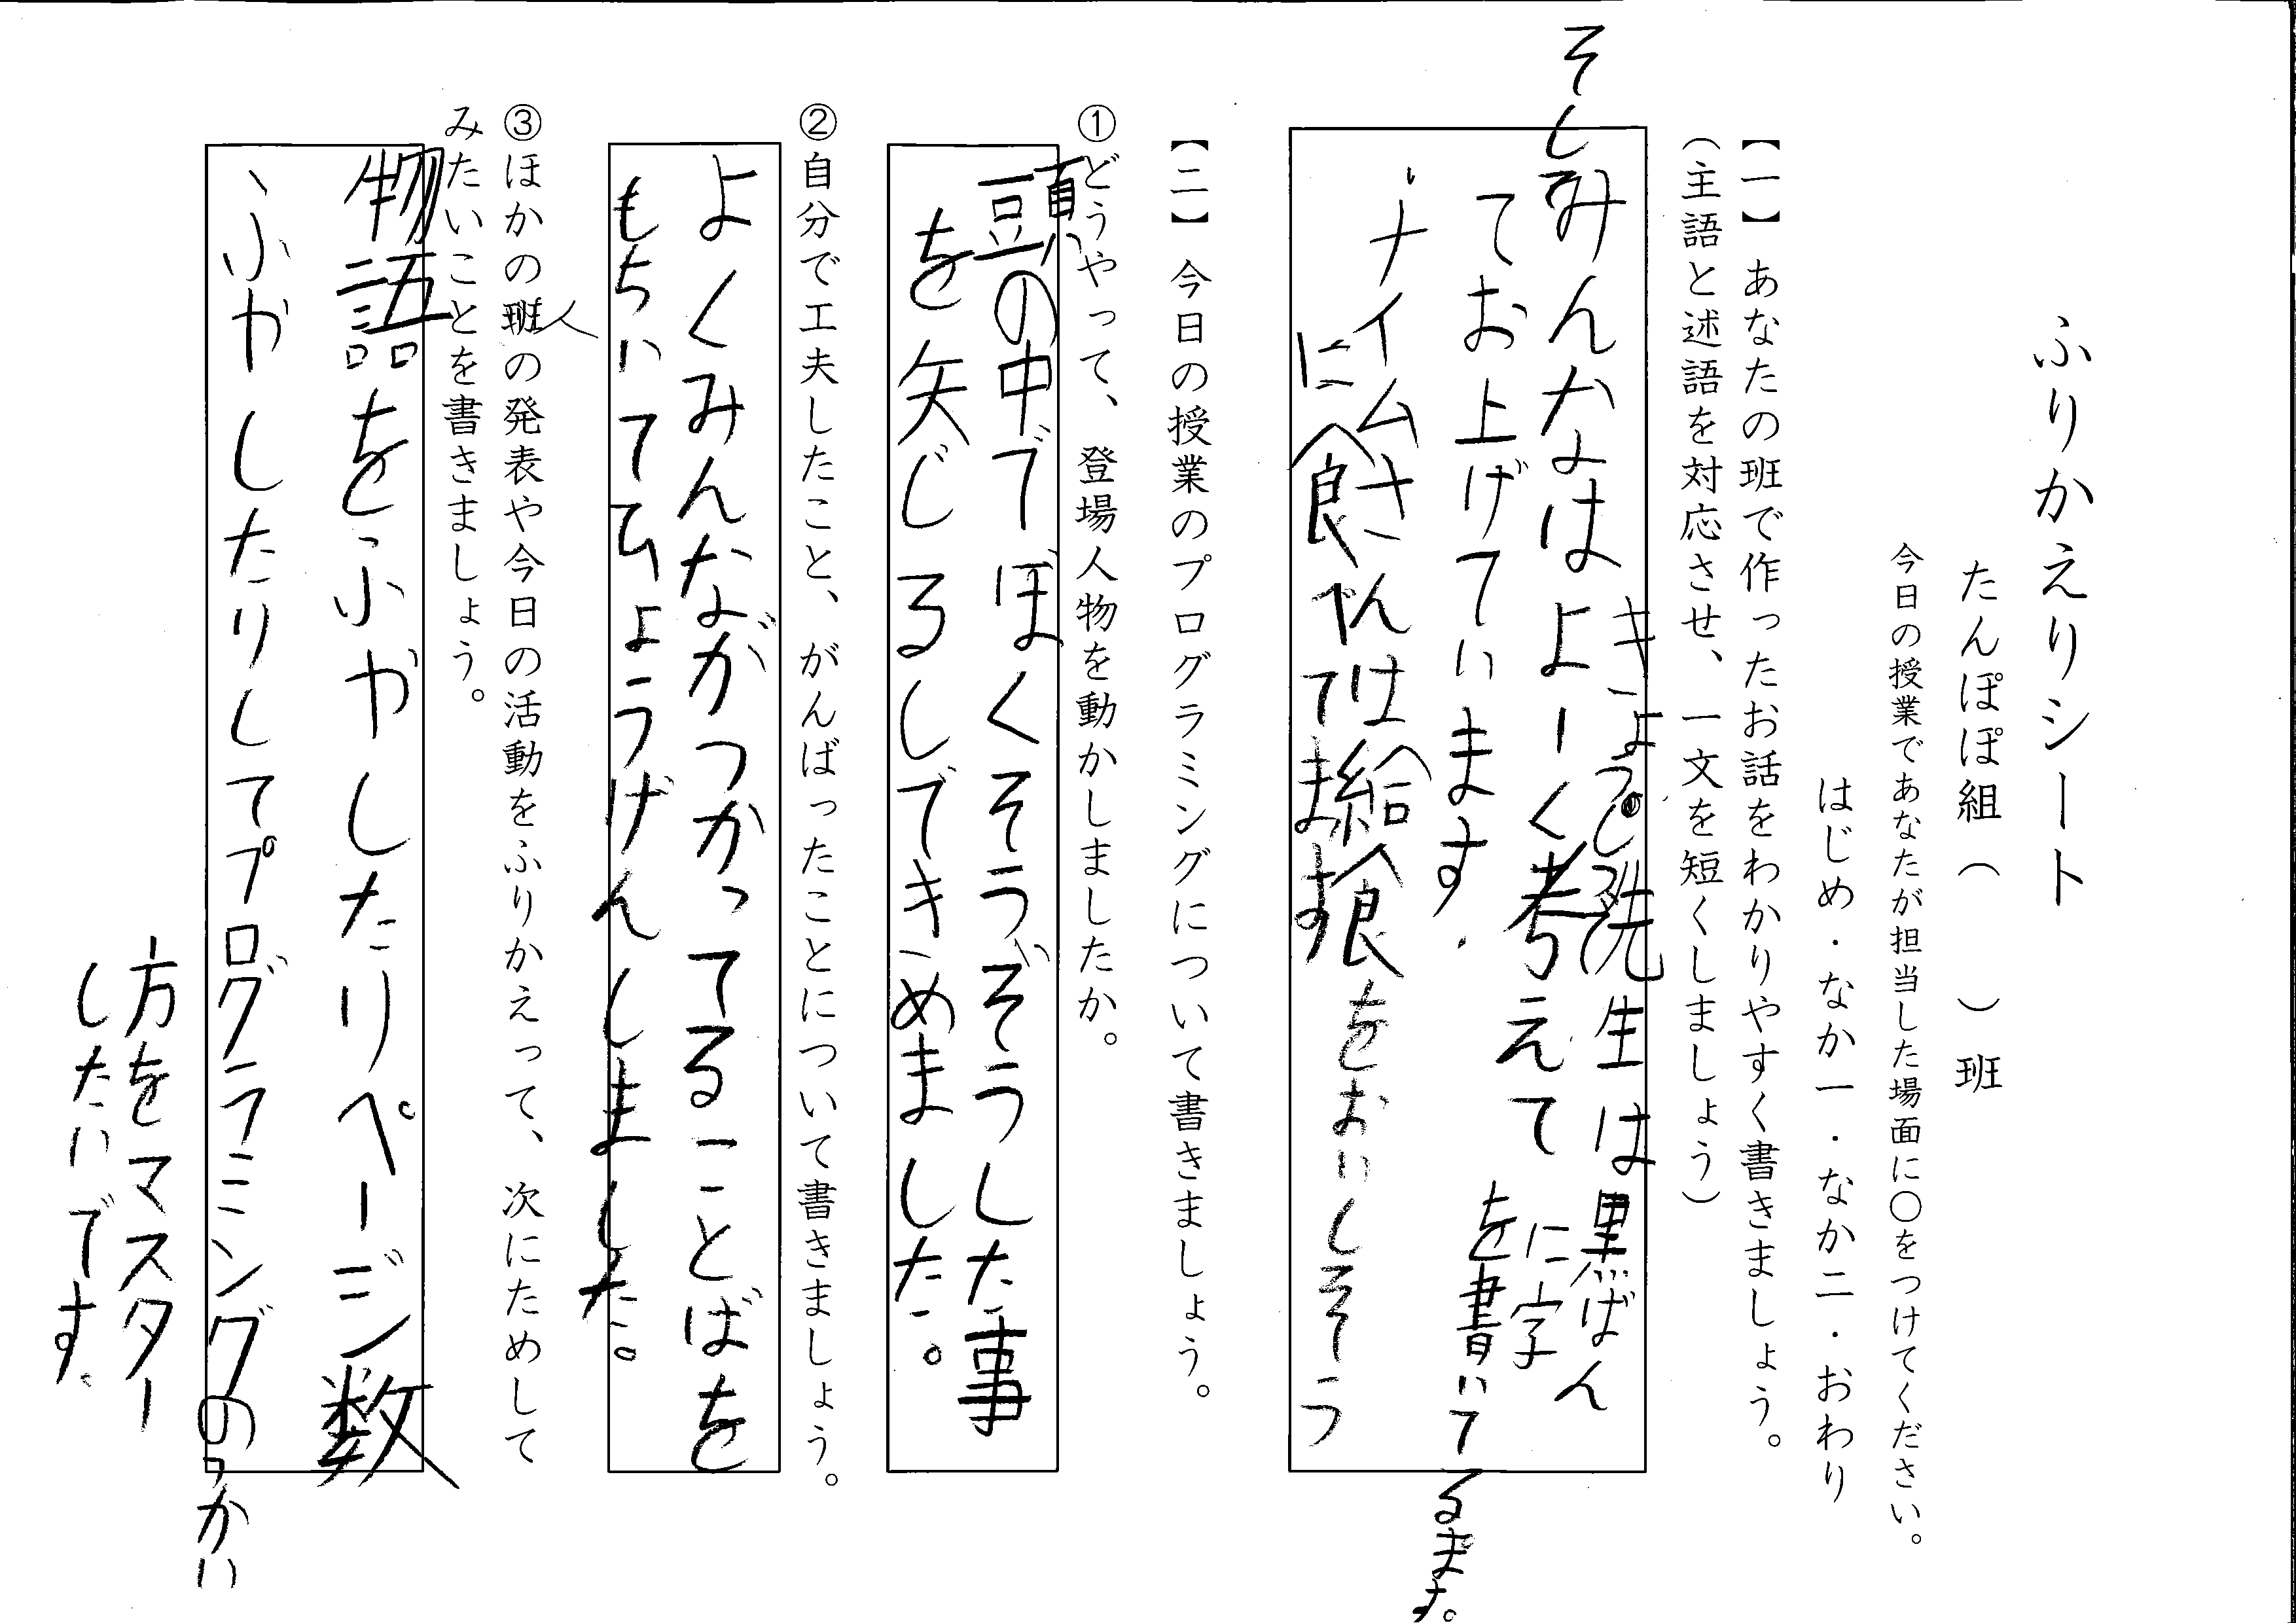 ふりかえりシート
たんぽぽ組（　　）班
今日の授業であなたが担当した場面に〇をつけてください。
はじめ・なか一・なか二・おわり
【一】あなたの班で作ったお話をわかりやすく書きましょう。
（主語と述語を対応させ、一文を短くしましょう）
きょうし先生は黒ばん
に字
を書いてるます。
そしてみんなはよーく考えて
てお上げています。
ナイムさんは給食をおいしそう
に食べてます
【二】今日の授業のプログラミングについて書きましょう。
①どうやって、登場人物を動かしましたか。
頭の中でぼくそうぞうした事
を矢じるしできめました。
②自分で工夫したこと、がんばったことについて書きましょう。
よくみんながつかってることばを
もちいてひょうげんしました。
③ほかの班人の発表や今日の活動をふりかえって、次にためして
みたいことを書きましょう。
物語をふやしたりページ数
ふやしたりしてプログラミングのつかい
方をマスター
したいです。